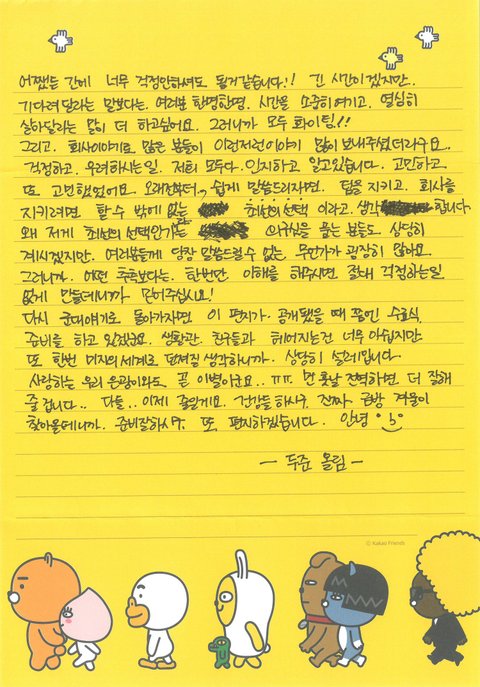 어쨌든 간에 너무 걱정안하셔도 될거같습니다!! 긴 시간이겠지만..
기다려달라는 말보다는. 여러분 한명한명. 시간을 소중히여기고. 열심히
살아달라는 말이 더 하고싶어요. 그러니까 모두 화이팅!!
그리고. 회사이야기로 많은 분들이 이런저런이야기 많이 보내주셨더라구요..
걱정하고. 우려하시는일. 저희 모두다. 인지하고 알고있습니다. 고민하고
또 고민했었어요. 오래전부터.. 쉽게 말씀드리자면. 팀을 지키고. 회사를
지키려면 할 수 밖에 없는 최선의 선택 이라고. 생각 합니다
왜 저게 최선의 선택인가 의구심을 품는 분들도 상당히
계시겠지만. 여러분들께 당장 말씀드릴수 없는 무언가가 굉장히 많아요.
그러니까. 어떤 추측보다는. 한번만 이해를 해주시면 절대 걱정하는일
없게 만들테니까 믿어주십시요!
다시 군대얘기로 돌아가자면 이 편지가. 공개됐을 때 쯤엔 수료식
준비를 하고 있겠군요. 생활관. 친구들과 헤어지는건 너무 아쉽지만
또 한번 미지의세계로 던져질 생각하니까. 상당히 설레입니다.
사랑하는 우리 은광이와도 곧 이별이군요.. ㅠㅠ 먼 훗날 전역하면 더 잘해
줄 겁니다.. 다들.. 이제 줄일게요. 건강들하시구. 진짜. 금방 겨울이
찾아올테니까. 준비잘하시구. 또. 편지하겠습니다. 안녕
- 두준 올림 -
© Kakao Friends